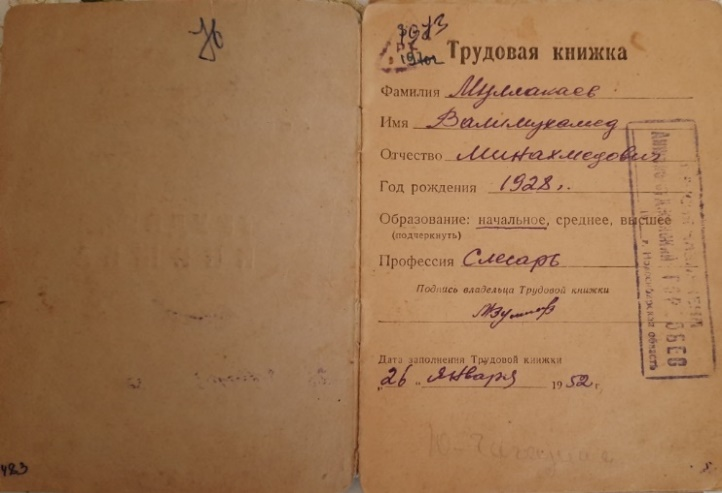 Н
1973
Трудовая книжка
Фамилия Муллакаев
Имя Валимухамед
Отчество Минахмедович
Год рождения 1928 г.
Образование: начальное, среднее, высшее
(подчеркнуть)
Профессия Слесарь
Подпись владельца Трудовой книжки
Дата заполнения Трудовой книжки
"26" января 1952 г.
423